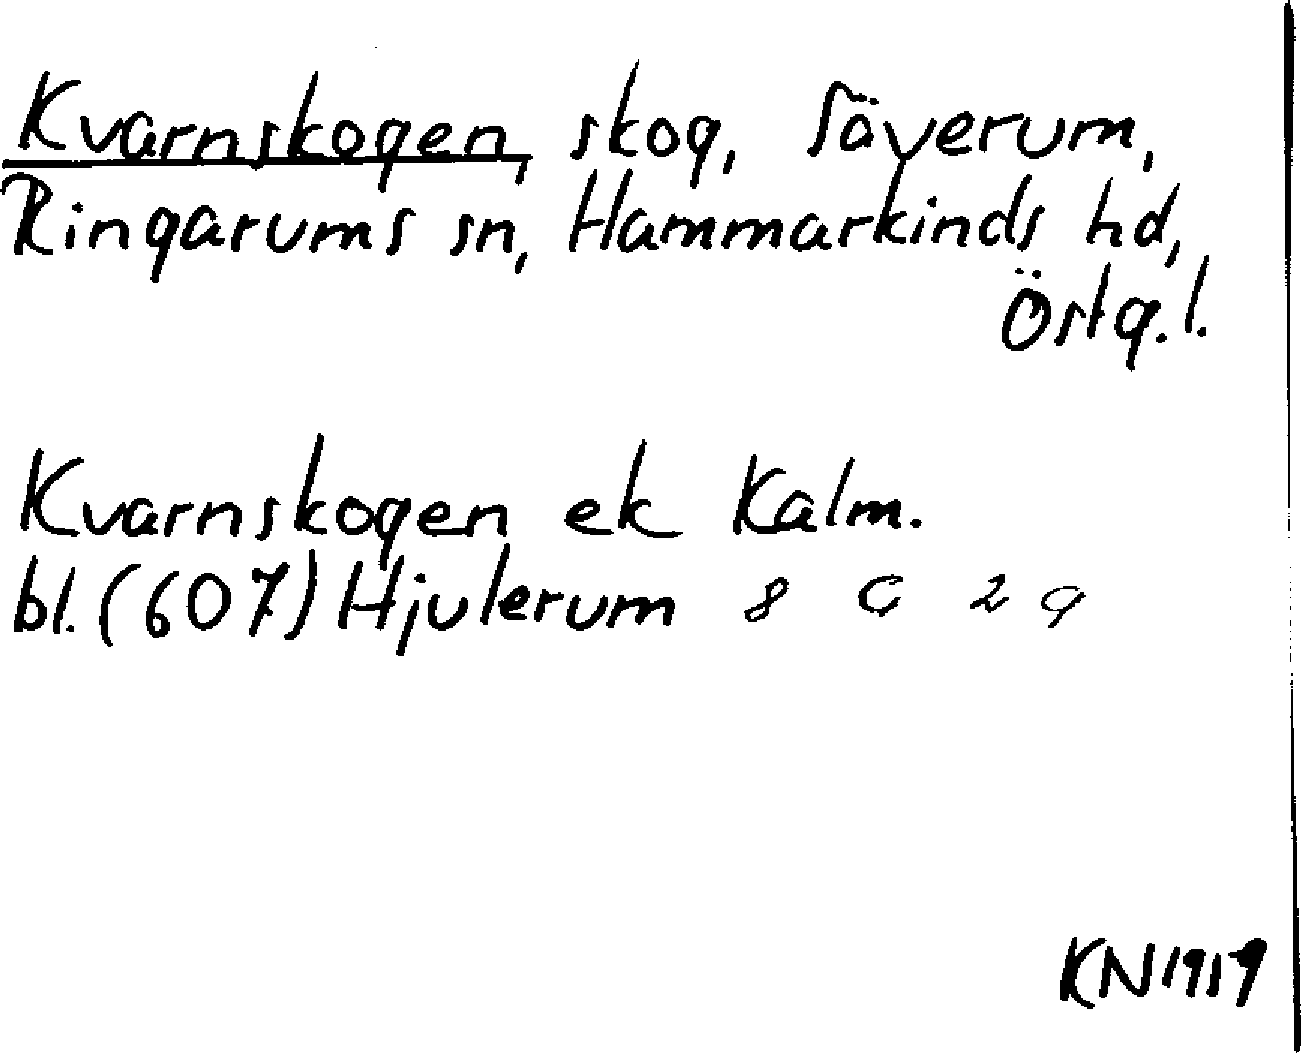 Kvarnskogen, skog, Säverum,
Ringarums sn, Hammarkinds hd,
Östg.l.
Kvarnskogen ek Kalm.
bl. (607) Hjulerum 8 G 2 a
KN 1919